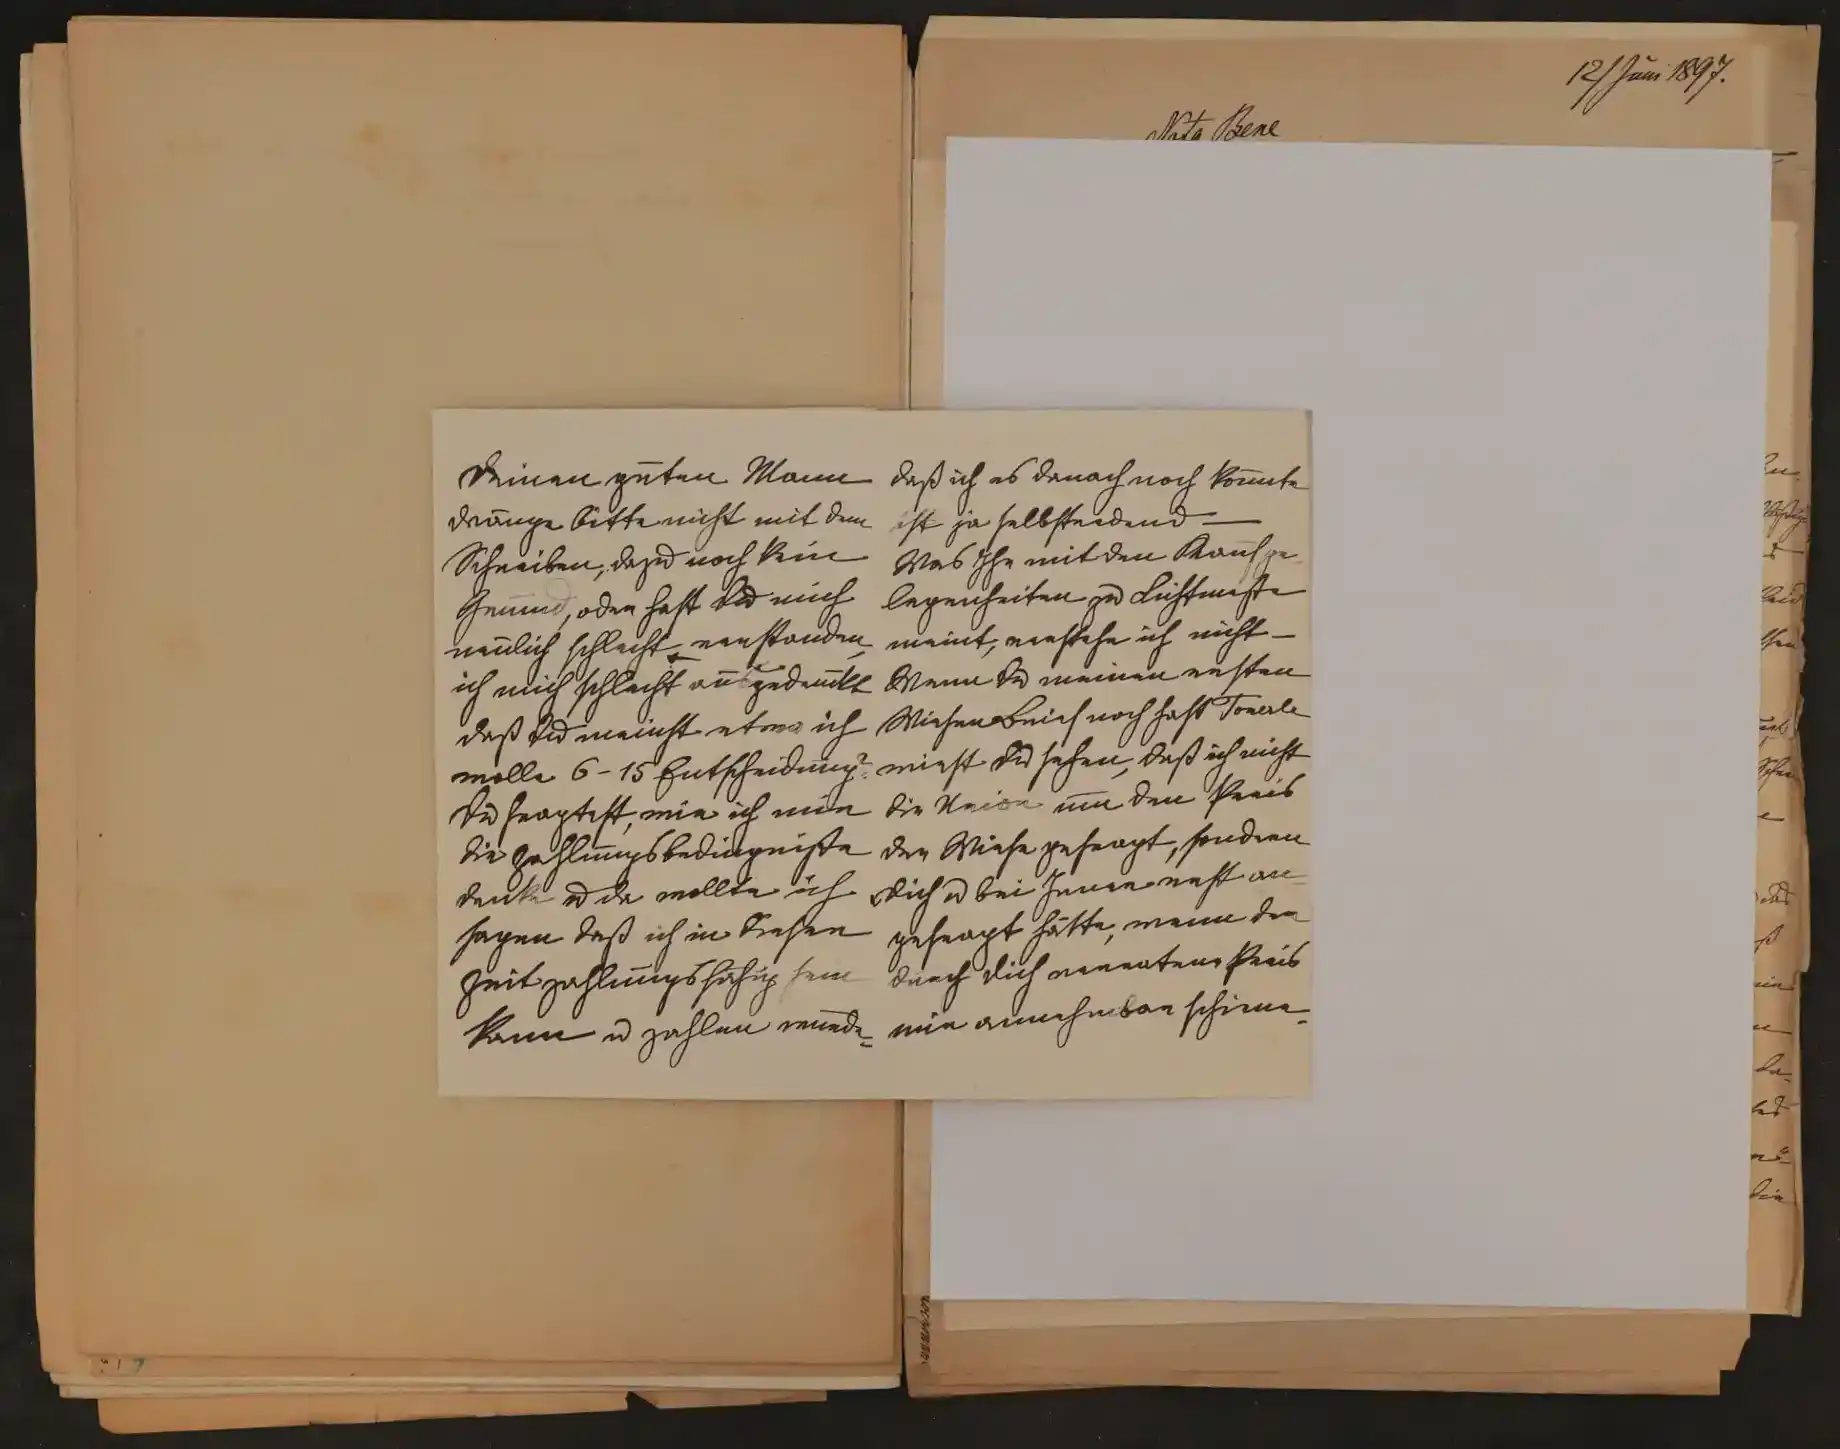 12/ Juni 1897.
Nota Bene
Deinen guten Mann
dränge bitte nicht mit dem
Schreiben, dazu noch kein
Grund, oder hast Du mich
neulich schlecht verstanden,
ich mich schlecht ausgedrückt
daß Du meinst etwa ich
wolle 6-15 Entscheidung?
Du fragtest, wie ich mir
die Zahlungsbedingniße
denke u da wollte ich
sagen daß ich in dieser
Zeit zahlungsfähig sein
kann u zahlen werde
daß ich es danach noch könnte
ist ja selbstredend —
Was Ihr mit den Kaufge-
legenheiten zu Lichtmeße
meint, verstehe ich nicht —
Wenn Du meinen ersten
Wiesen Brief noch hast
wirst Du sehen, daß ich nicht
die um den Preis
der Wiese gefragt, sondern
Dich u bei erst an-
gefragt hätte, wenn der
durch Dich Preis
mir annehmbar schiene